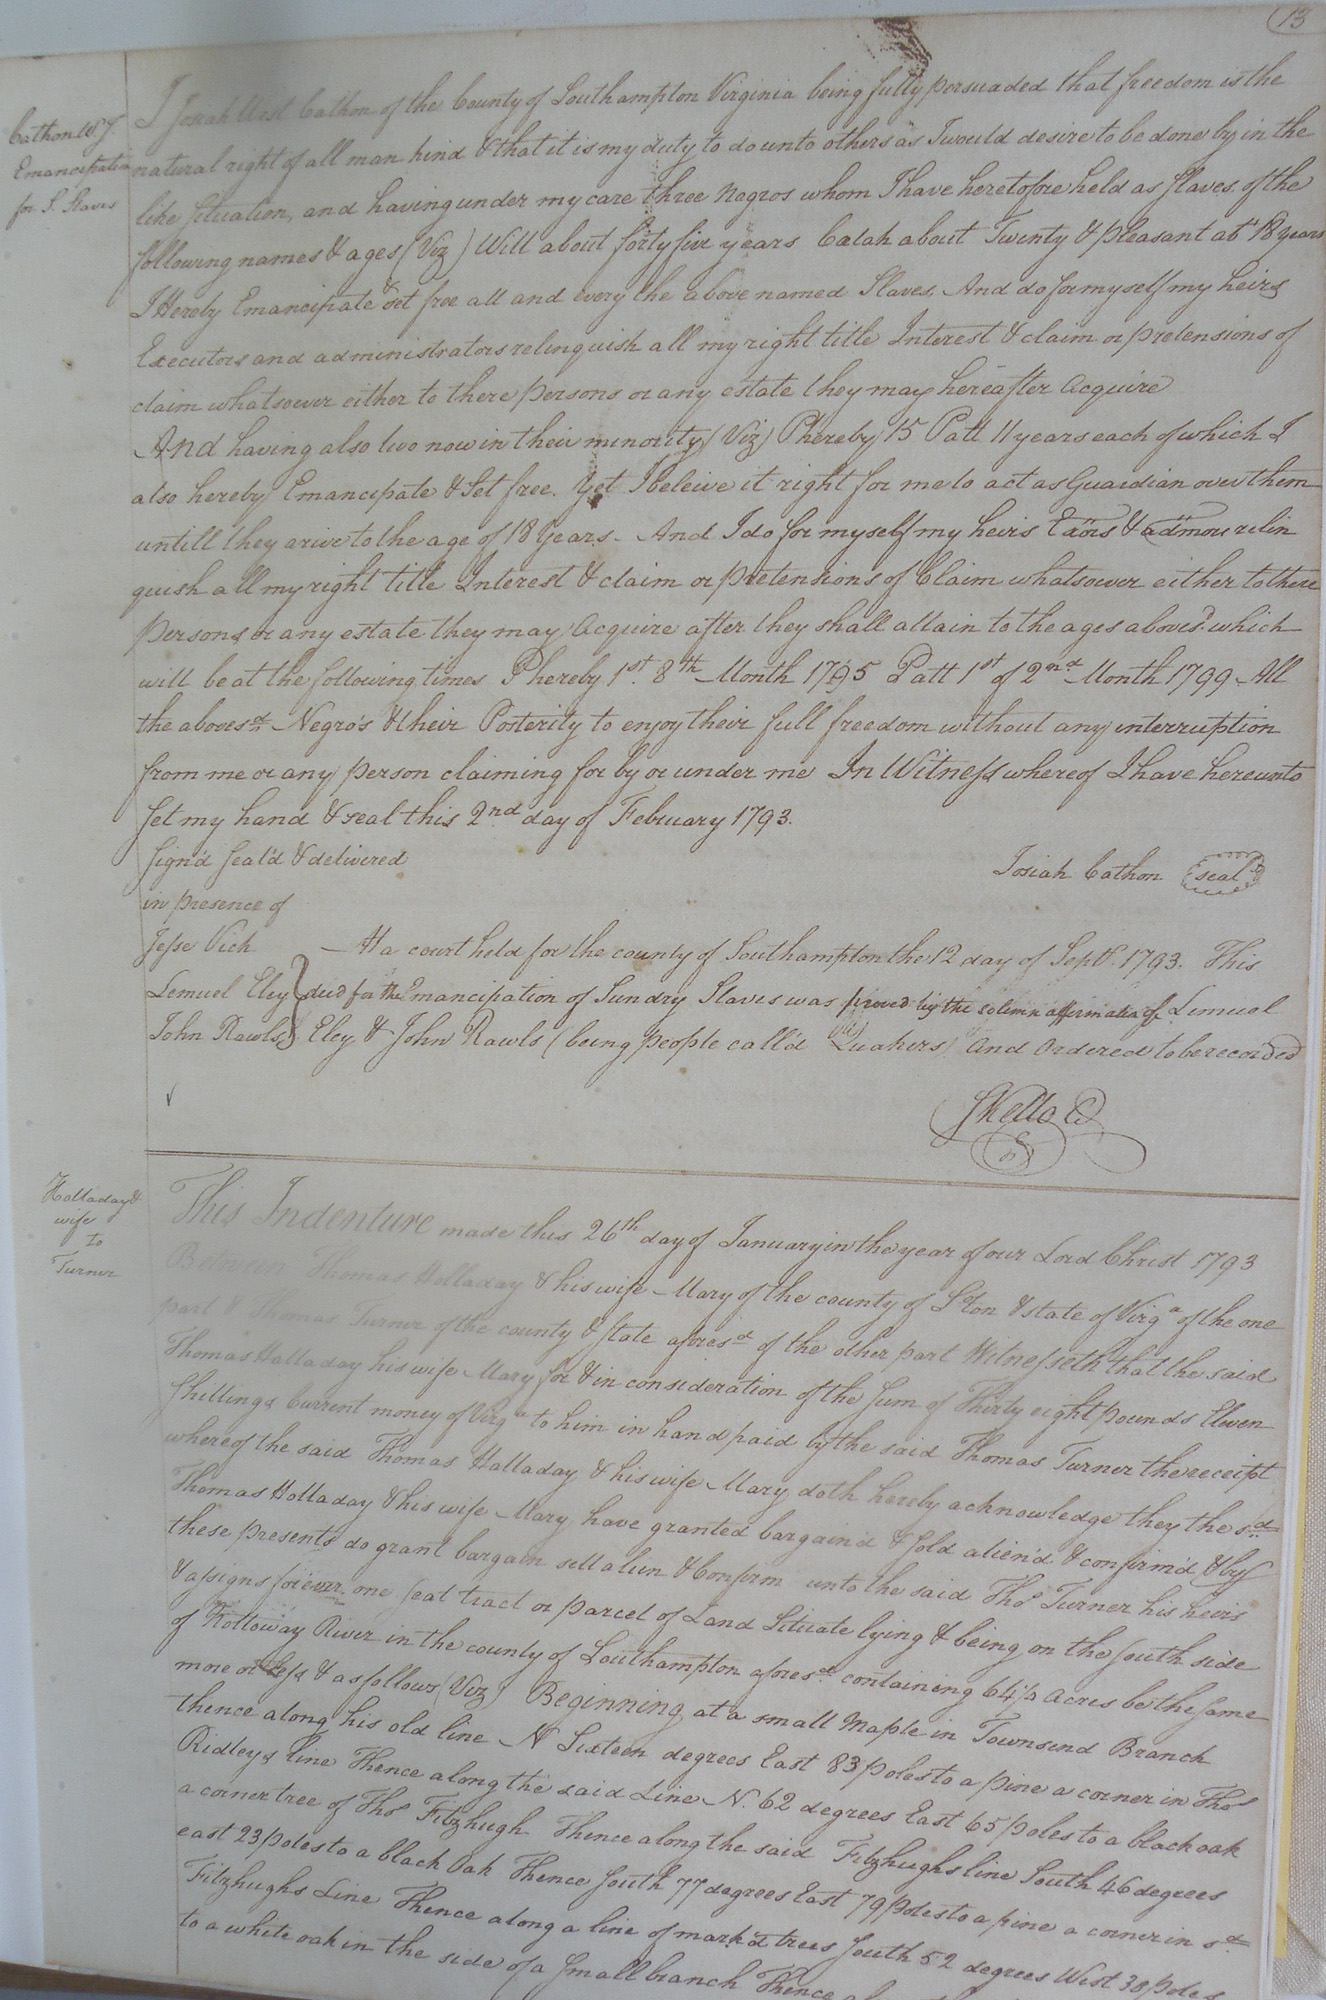 13
Cathon W. J.
Emancipation
for S. Slaves
I Josiah West Cathon of the County of Southampton Virginia being fully persuaded that freedom is the
natural right of all man kind & that it is my duty to do unto others as I would desire to be done by in the
like Situation, and having under my care three Negros whom I have heretofore held as Slaves of the
following names & ages (Viz) Will about forty five years Catah about Twenty & pleasant abt 18 years
I Hereby Emancipate & set free all and every the above named Slaves. And do for myself my heirs
Executors and administrators relinquish all my right title Interest & claim or pretensions of
claim whatsoever either to there persons or any estate they may hereafter Acquire
And having also two now in their minority (Viz) Phereby 15 Patt 11 years each of which I
also hereby Emancipate & Set free. Yet I beleive it right for me to act as Guardian over them
untill they arive to the age of 18 Years. And I do for myself my heirs Exōrs & admōrs relin
quish all my right title Interest & claim or pretensions of Claim whatsoever either to there
Persons or any estate they may Acquire after they shall attain to the ages abovesd. which
will be at the following times Phereby 1st. 8th Month 1795 Patt 1st of 2nd Month 1799 All
the abovesd Negro's & their Posterity to enjoy their full freedom without any interruption
from me or any person claiming for by or under me In Witness whereof I have hereunto
set my hand & seal this 2nd day of February 1793.
Sign'd Seal'd & delivered
Josiah Cathon seal
in presence of
Jesse Vick
Lemuel Eley
John Rawls
At a court held for the county of Southampton the 12 day of Septr. 1793. This
deed for the Emancipation of Sundry Slaves was proved by the solemn affirmation of Lemuel
Eley & John Rawls (being people call'd Quakers) And Ordered to be recorded
SKello CC
Holladay &
wife
to
Turner
This Indenture made this 26th day of January in the year of our Lord Christ 1793
Between Thomas Holladay & his wife Mary of the county of Soton & state of Virga of the one
part & Thomas Turner of the county & state aforesd of the other part Witnesseth that the said
Thomas Holladay his wife Mary for & in consideration of the Sum of Thirty eight pounds Eleven
Shillings Current money of Virga to him in hand paid by the said Thomas Turner the receipt
whereof the said Thomas Halladay & his wife Mary doth hereby acknowledge they the sd
Thomas Holladay & his wife Mary have granted bargain'd & sold alien'd & confirm'd & by
these presents do grant bargain sell alien & Confirm unto the said Thos Turner his heirs
& assigns forever one seat tract or parcel of Land Situate lying & being on the South side
of Nottoway River in the county of Southampton aforesd containing 64½ Acres be the same
more or less & as follows (Viz) Beginning at a small Maple in Townsend Branch
thence along his old line N Sixteen degrees East 83 poles to a pine a corner in Thos
Ridleys line Thence along the said Line N. 62 degrees East 65 poles to a black oak
a corner tree of Thos Fitzhugh Thence along the said Fitzhughs line South 46 degrees
east 23 poles to a black Oak Thence South 77 degrees East 79 poles to a pine a corner in sd
Fitzhughs Line Thence along a line of mark'd trees South 52 degrees West 30 poles
to a white oak in the side of a Small branch Thence